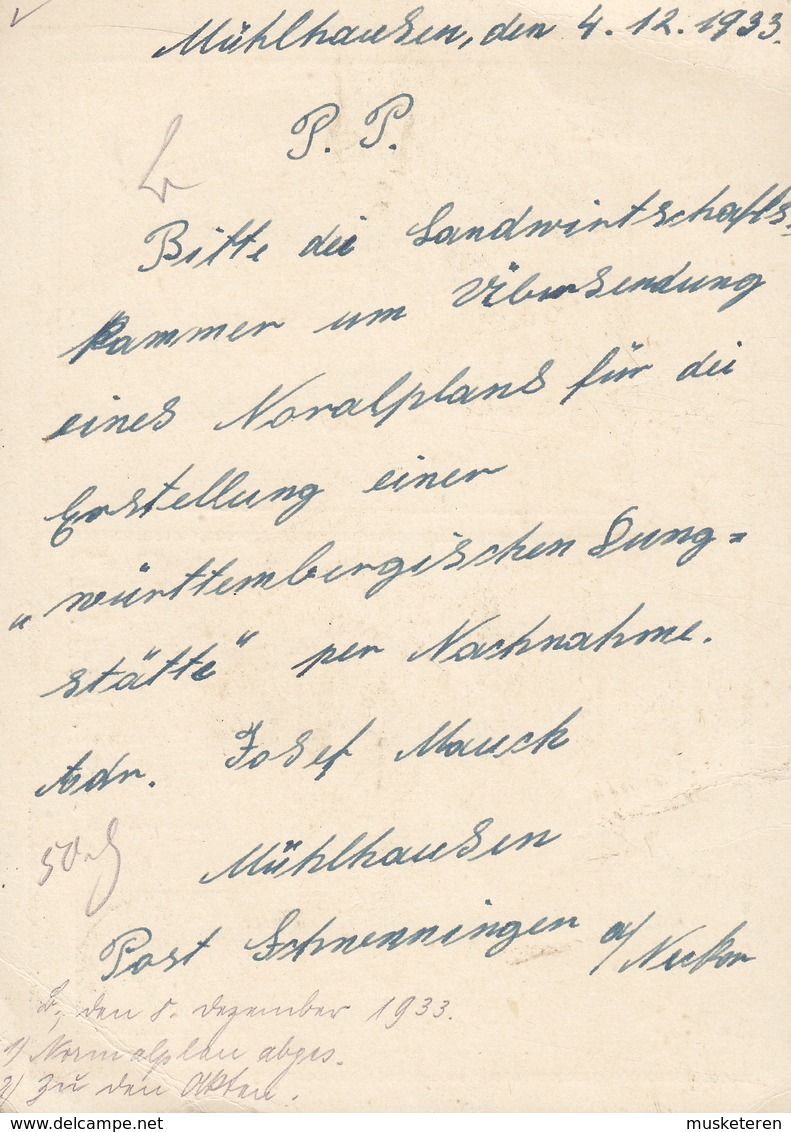 Mühlhausen, den 4.12.1933.
P. P.
Bitte die Landwirtschafts-
kammer um Übersendung
eines Noralplans für die
Erstellung einer
„württembergischen Dung=
stätte" per Nachnahme.
Adr. Josef Mauck
50
Mühlhausen
Post Schwenningen a/
Neckar
den 8. Dezember 1933.
1) Normalplan abges.
2) Zu den Akten.
musketeren delcampe.net